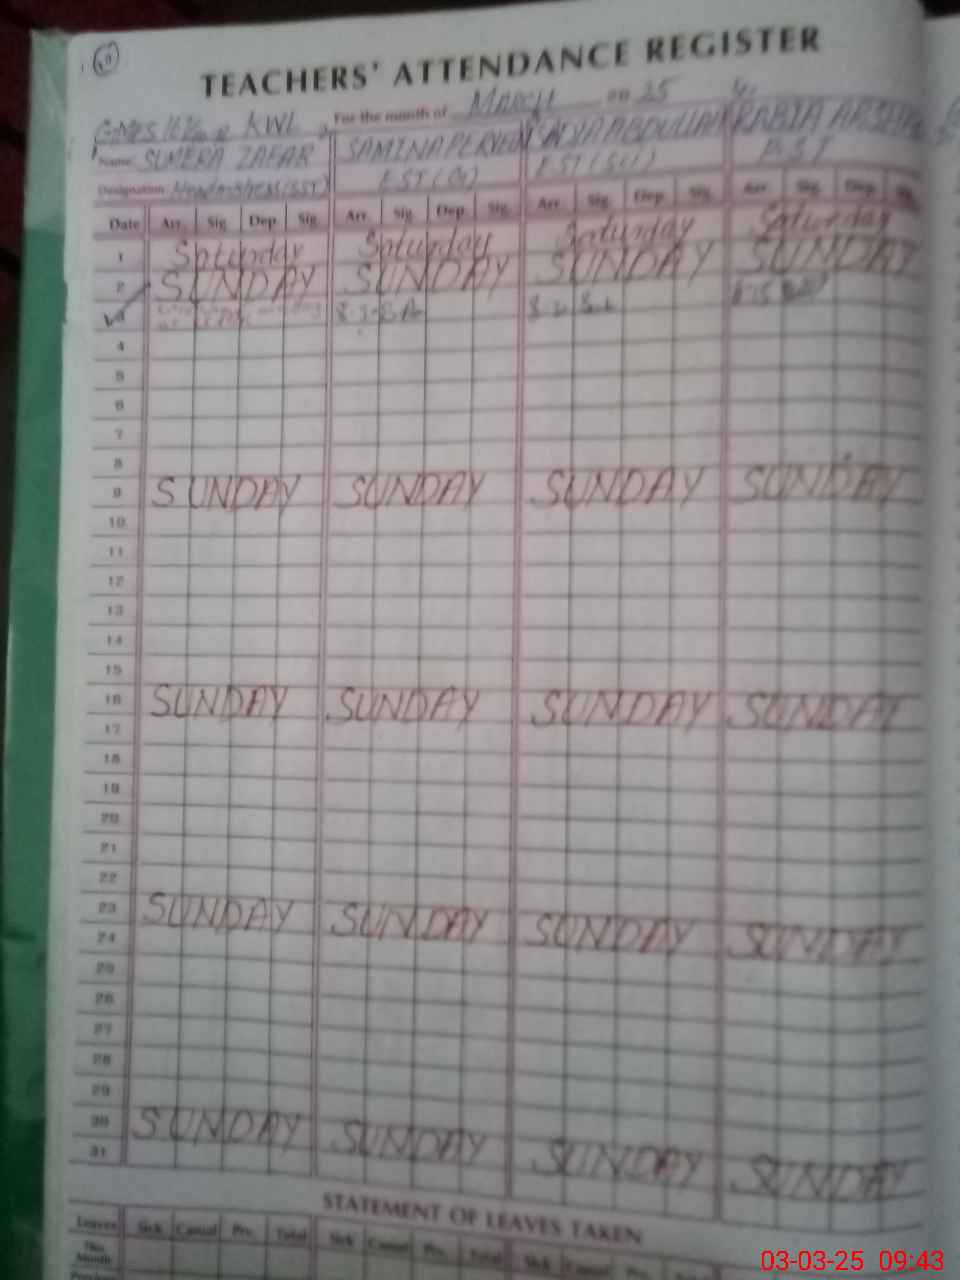 TEACHERS' ATTENDANCE REGISTER
KWL For the month of March 25
Name SUMERA ZAFAR SAMINA PERVEEN SADIA ABDULLAH RABIA
Designation EST EST (Sci) EST
Date Arr. Sig. Dep. Sig. Arr. Sig. Dep. Sig. Arr. Sig. Dep. Sig. Arr. Sig. Dep. Sig.
1 Saturday Saturday Saturday Saturday
2 SUNDAY SUNDAY SUNDAY SUNDAY
3
4
5
6
7
8
9 SUNDAY SUNDAY SUNDAY SUNDAY
10
11
12
13
14
15
16 SUNDAY SUNDAY SUNDAY SUNDAY
17
18
19
20
21
22
23 SUNDAY SUNDAY SUNDAY SUNDAY
24
25
26
27
28
29
30 SUNDAY SUNDAY SUNDAY SUNDAY
31
STATEMENT OF LEAVES TAKEN
Leaves Sick Casual Prv. Total Sick Casual Prv. Total Sick
This
Month
03-03-25 09:43